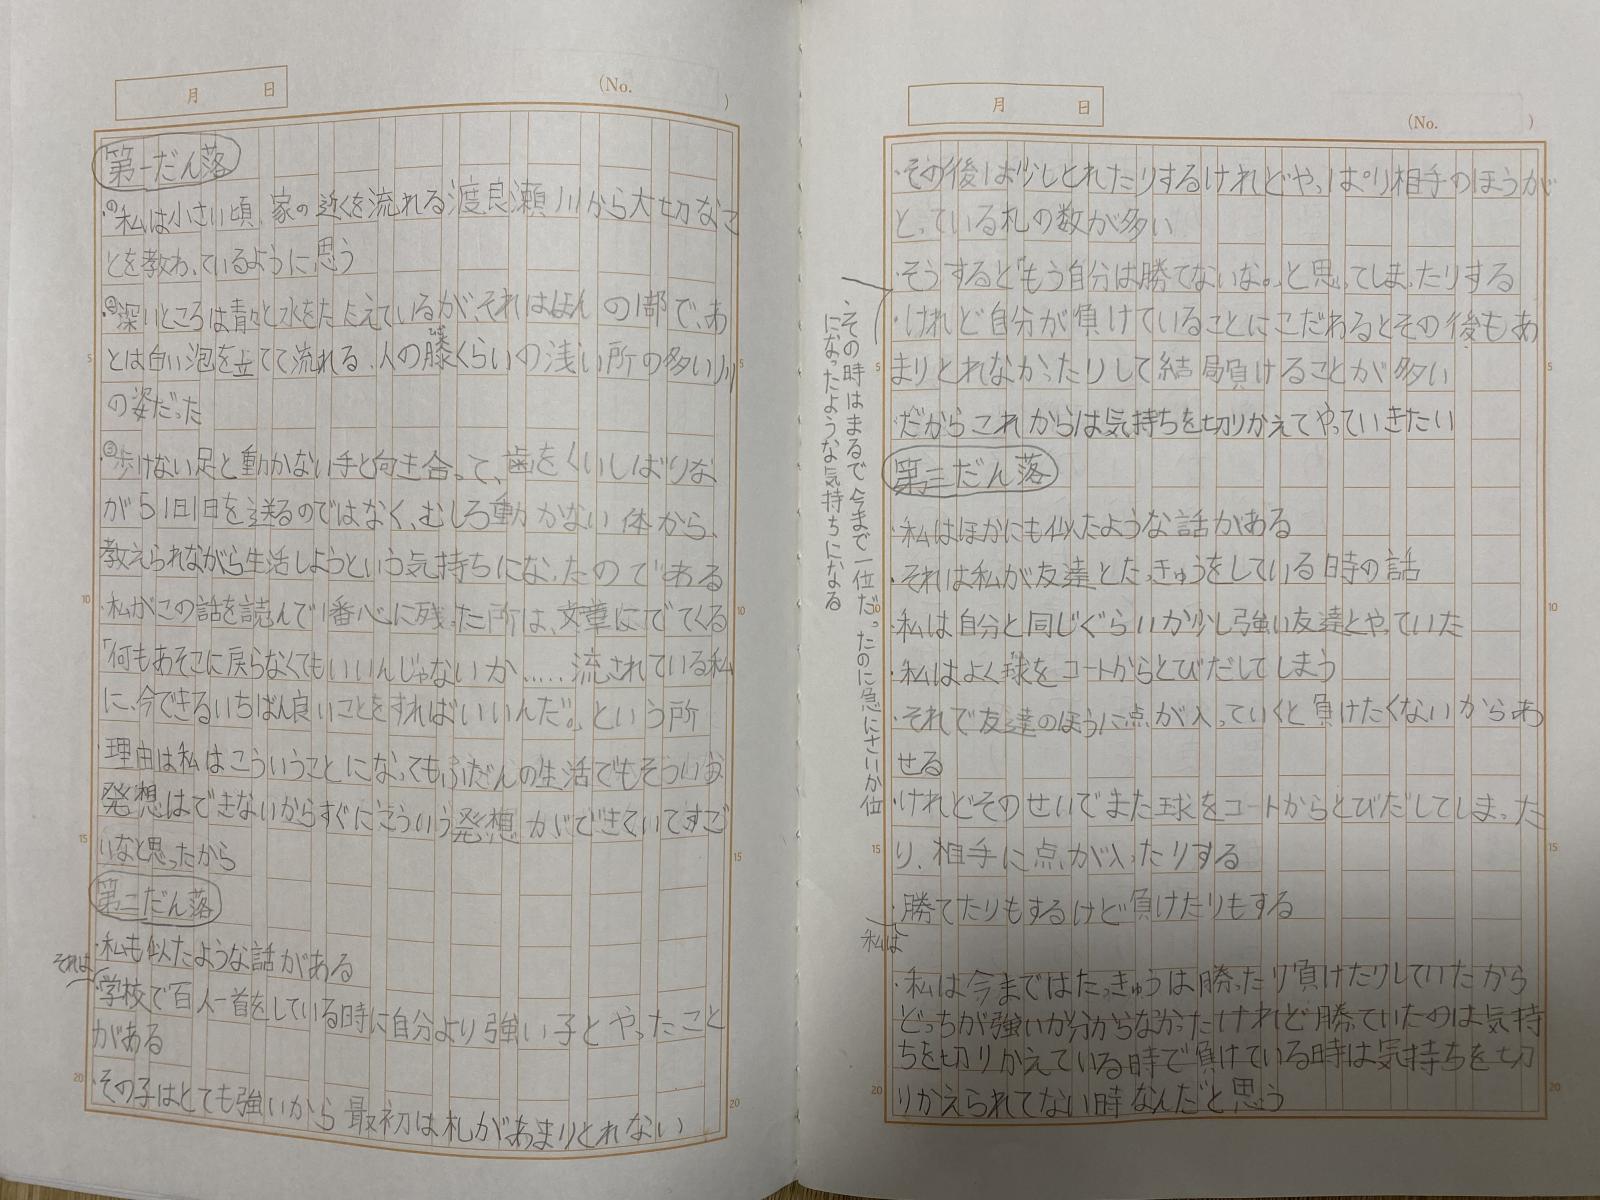 月 日
(No. )
第一だん落
・①私は小さい頃、家の近くを流れる渡良瀬川から大切なこ
とを教わっているように思う
・②深いところは青々と水をたたえているが、それはほんの1部で、あ
とは白い泡を立てて流れる、人の膝くらいの浅い所の多い川
ひざ
の姿だった
・③歩けない足と動かない手と向き合って、歯をくいしばりな
がら1日1日を送るのではなく、むしろ動かない体から、
教えられながら生活しようという気持ちになったのである
・私がこの話を読んで1番心に残った所は、文章にでてくる
「何もあそこに戻らなくてもいいんじゃないか……流されている私
に、今できるいちばん良いことをすればいいんだ。」という所
・理由は私はこういうことになってもふだんの生活でもそういう
発想はできないからすぐにそういう発想ができていてすご
いなと思ったから
第二だん落
・私も似たような話がある
それは
・学校で百人一首をしている時に自分より強い子とやったこと
がある
・その子はとても強いから最初は札があまりとれない
月 日
(No. )
・その後は少しとれたりするけれどやっぱり相手のほうが
とっている札の数が多い
・そうすると「もう自分は勝てないな。」と思ってしまったりする
・その時はまるで今まで一位だったのに急にさいか位
になったような気持ちになる
・けれど自分が負けていることにこだわるとその後もあ
まりとれなかったりして結局負けることが多い
・だからこれからは気持ちを切りかえてやっていきたい
第三だん落
・私はほかにも似たような話がある
・それは私が友達とたっきゅうをしている時の話
・私は自分と同じぐらいか少し強い友達とやっていた
・私はよく球をコートからとびだしてしまう
・それで友達のほうに点が入っていくと負けたくないからあ
せる
・けれどそのせいでまた球をコートからとびだしてしまった
り、相手に点が入ったりする
・勝てたりもするけど負けたりもする
私は
・私は今まではたっきゅうは勝ったり負けたりしていたから
どっちが強いか分からなかったけれど勝っていたのは気持
ちを切りかえている時で負けている時は気持ちを切
りかえられてない時なんだと思う